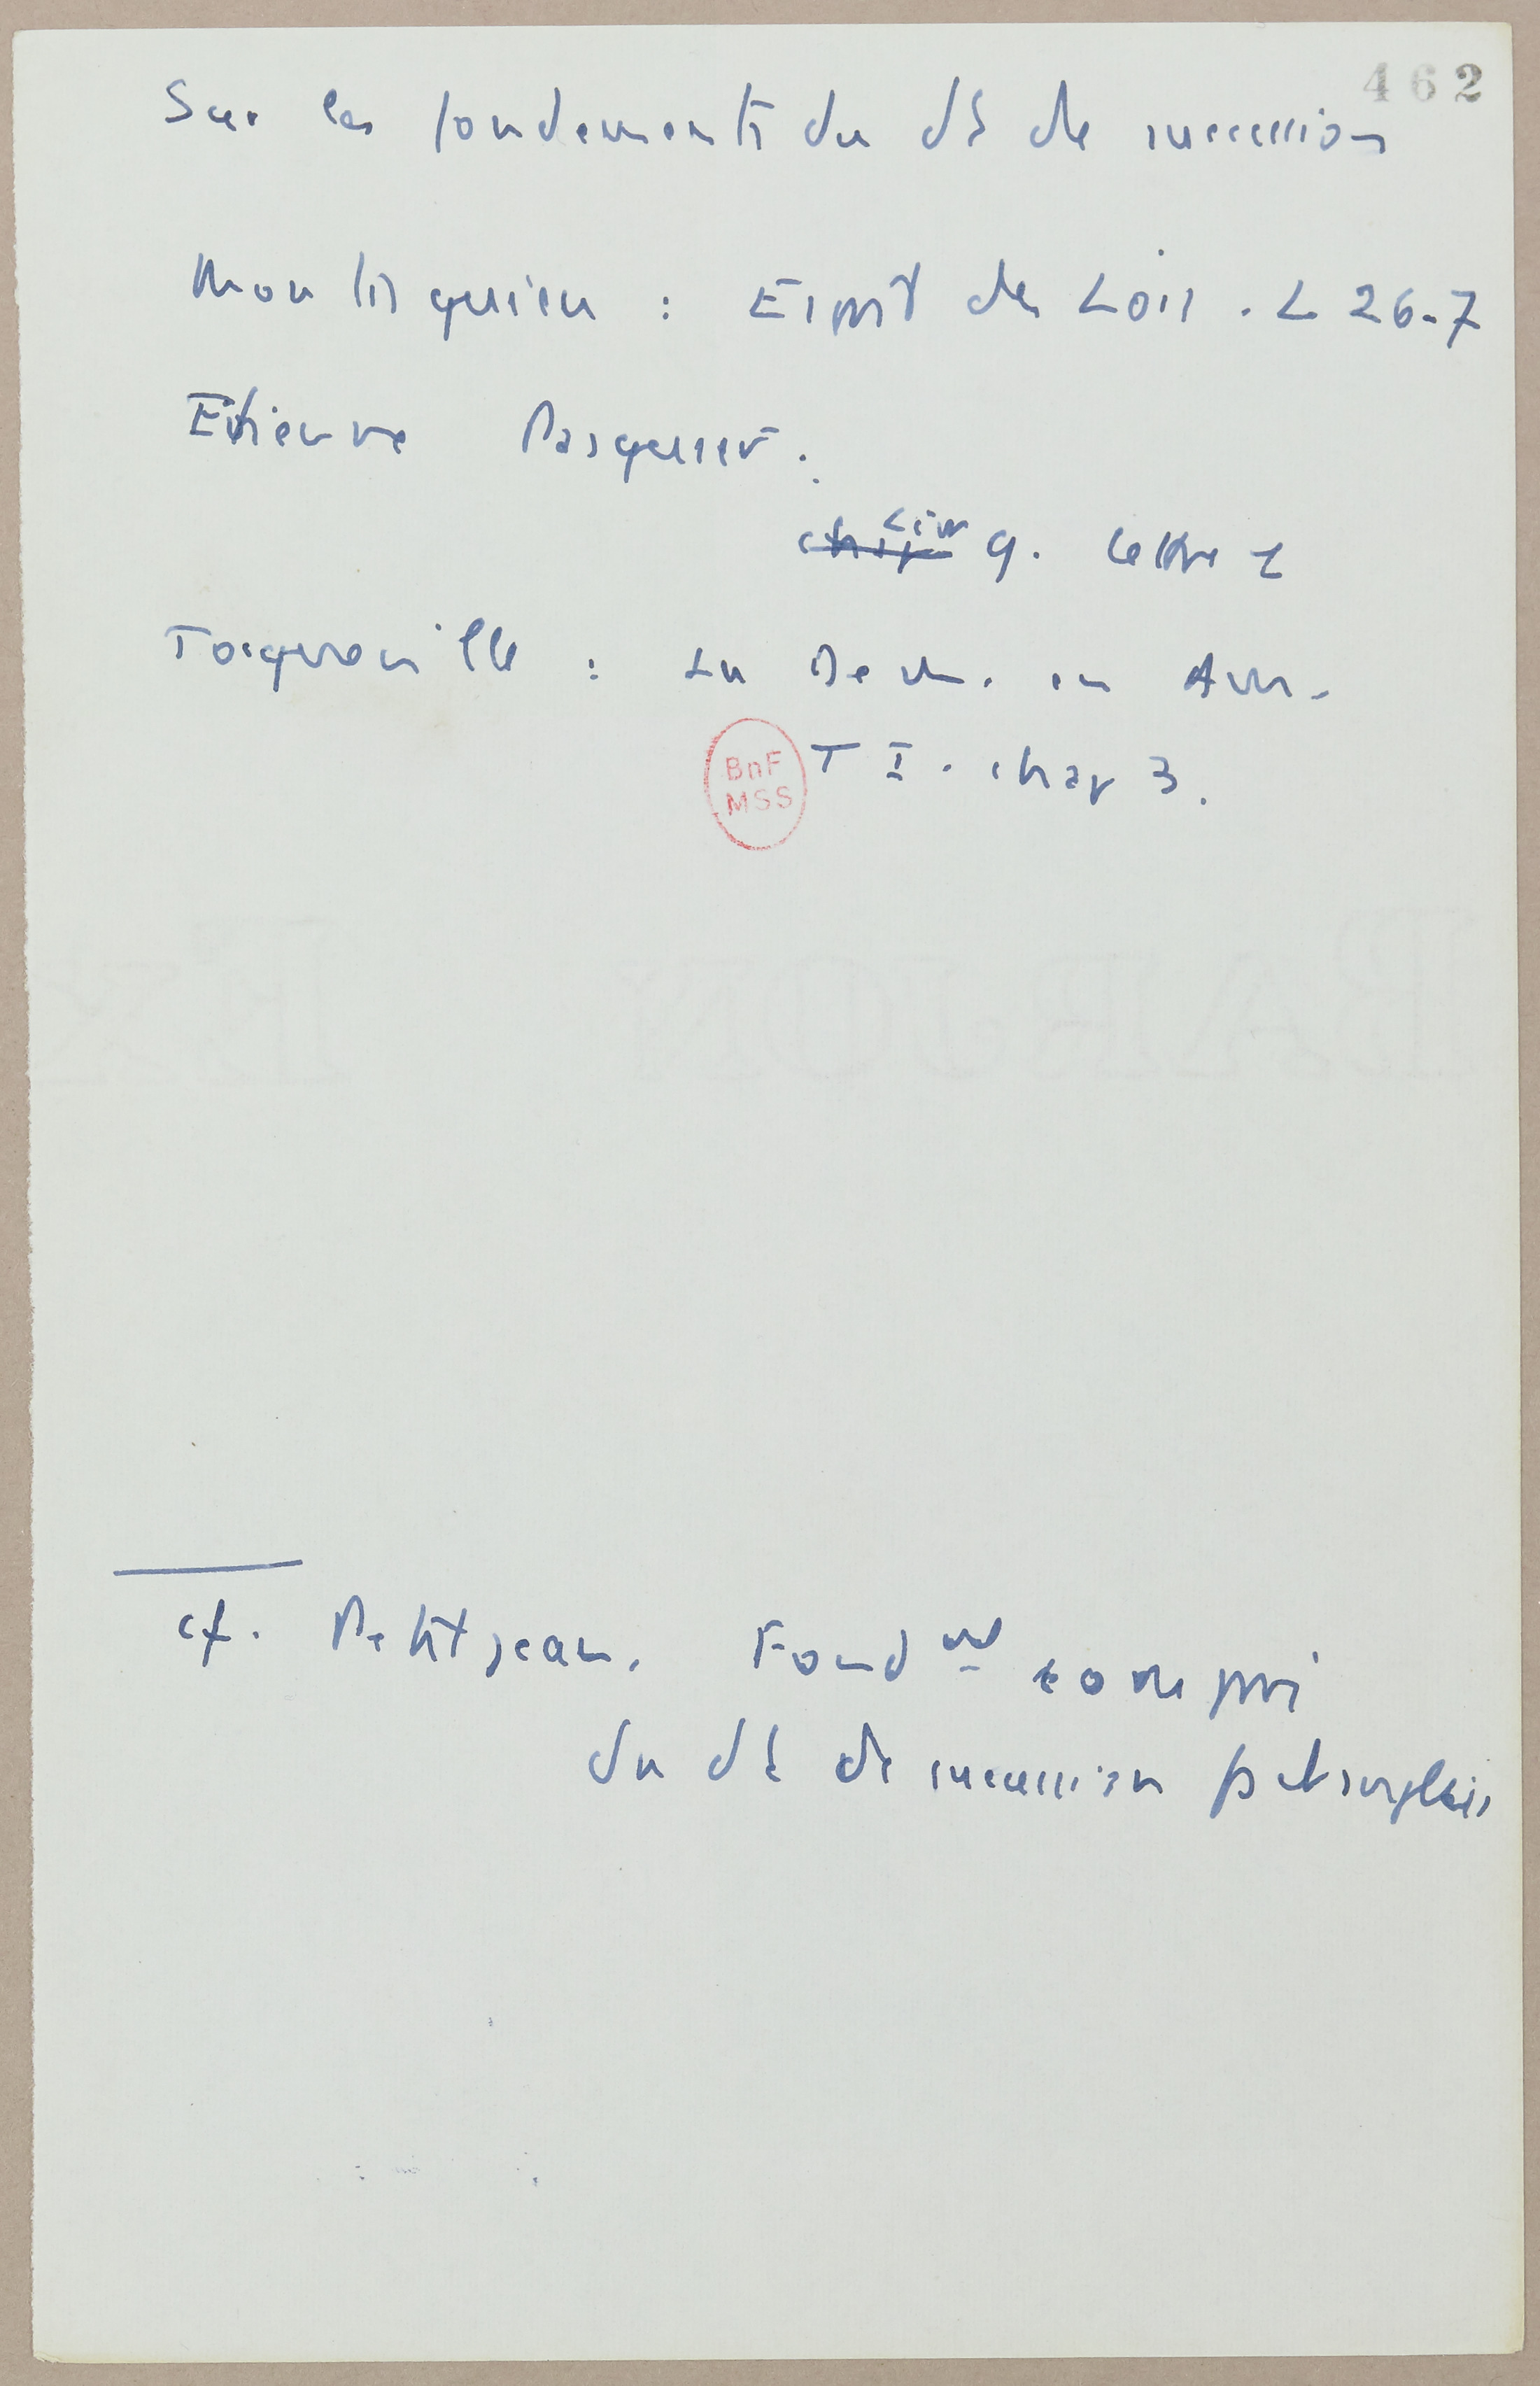 462
Sur les fondements du dt de succession
Montesquieu : Esprit des Lois . L 26-7
Etienne Pasquier.
chap Livr 9. lettre 1
Tocqueville : La Dem. en Am.
BnF MSS
T I. chap 3.
cf. Petitjean. Fondmts
du dt de succession
BARJON EX